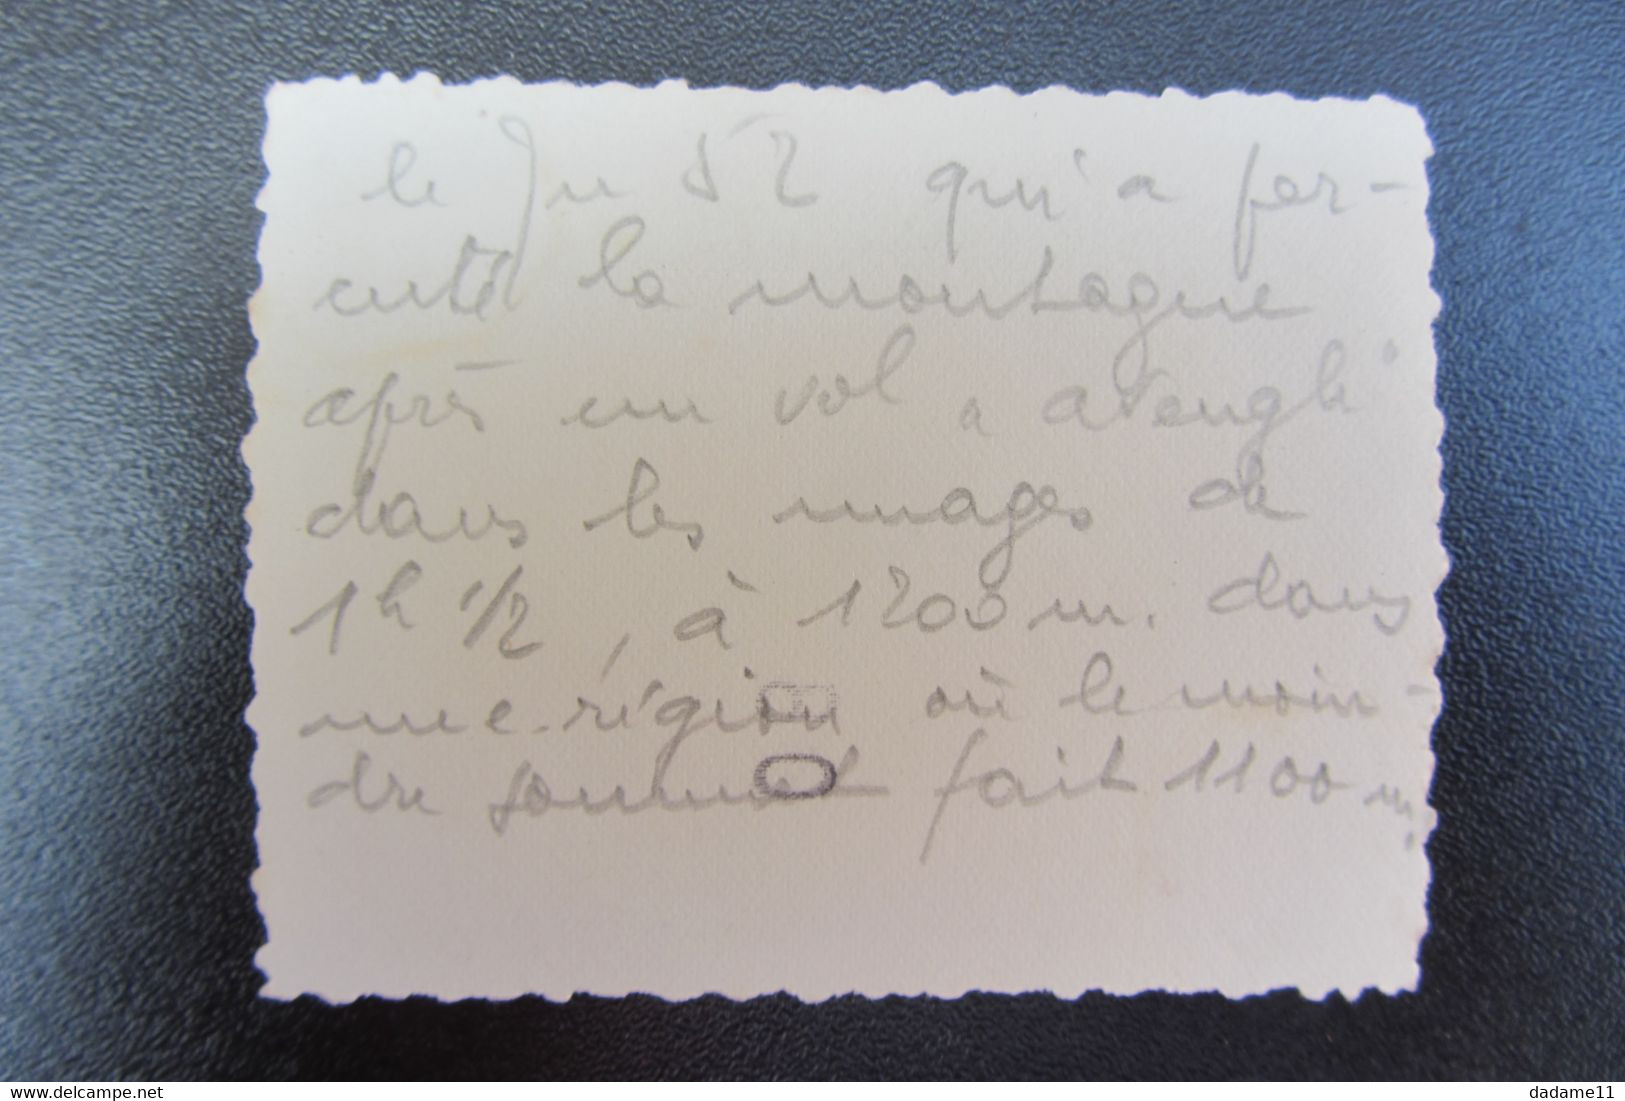 le Ju 52 qui a per-
cuté la montagne
après un vol "aveugle"
dans les nuages de
1h 1/2, à 1200 m. dans
une région où le moin-
dre sommet fait 1100 m.
www.delcampe.net
dadame11